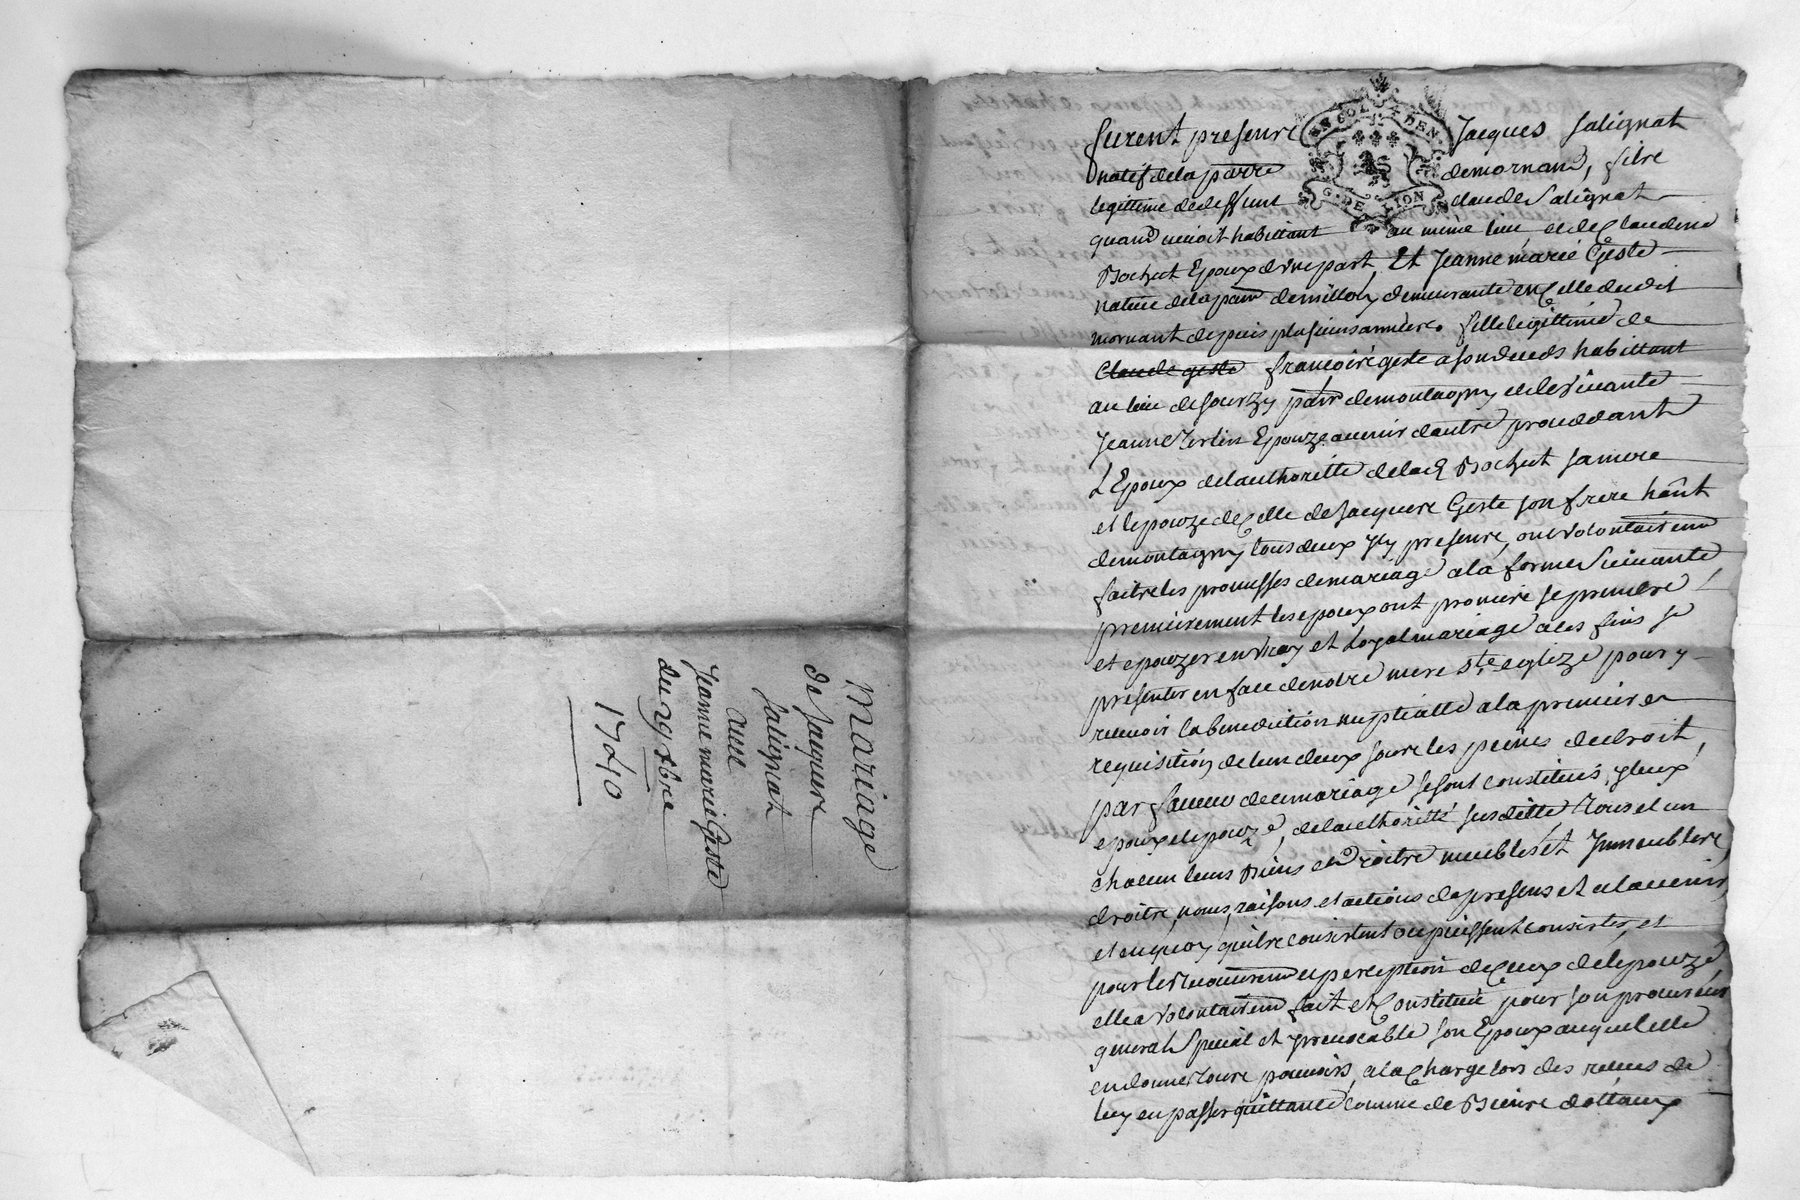 Mariage
de Jaques
Salignat
avec
Jeanne marie Geste
du 29 xbre
1740
EN COL DEN
G. DE LION
furent presens Jacques Salignat
natif de la parre demornand, fils
legittime de deffunt claude Salignat
quand vivoit habittant au même lieu, et de Claudine
Bochut Epoux d'une part, Et Jeanne marie Geste
native de la parr de millery demeurante en Celle dudit
mornant depuis plusieurs années fille legittime de
Claude geste francois geste a son deceds habittant
au lieu de Sourzy parr demontagny et de vivante
Jeanne Epouze avenir d'autre proceddant
L'Epoux de l'authoritté de lad Bochut sa mere
et l'epouze de Celle de Jacques Geste son frere hânt
demontagny tous deux Icy presens, ont volontairemt
fait les promesses demariage a la forme Suivante,
premierement les epoux ont promis se prendre
et epouzer en vray et Loyal mariage a les fins se
presenter en face de notre mere Ste eglize pour y
recevoir la benediction nuptialle a la premiere
requisition de l'un deux sous les peines de droit,
par faveur de ce mariage se sont constitués, yceux
epoux et epouze, de l'authoritté susditte Tous et un
chacun leurs Biens et droits meubles et Immeubles
droits, noms, raisons et actions de presens et a l'avenir,
et en quoy qu'ils consistent ou puissent consister, et
pour le recouvremt et perception de Ceux de l'epouze
elle a volontairemt fait et Constitué pour son procureur
general Special et yrrevocable son Epoux auquel elle
en donne tous pouvoirs, a la Charge lors des receus de
luy en passer quittance comme de Biens dottaux